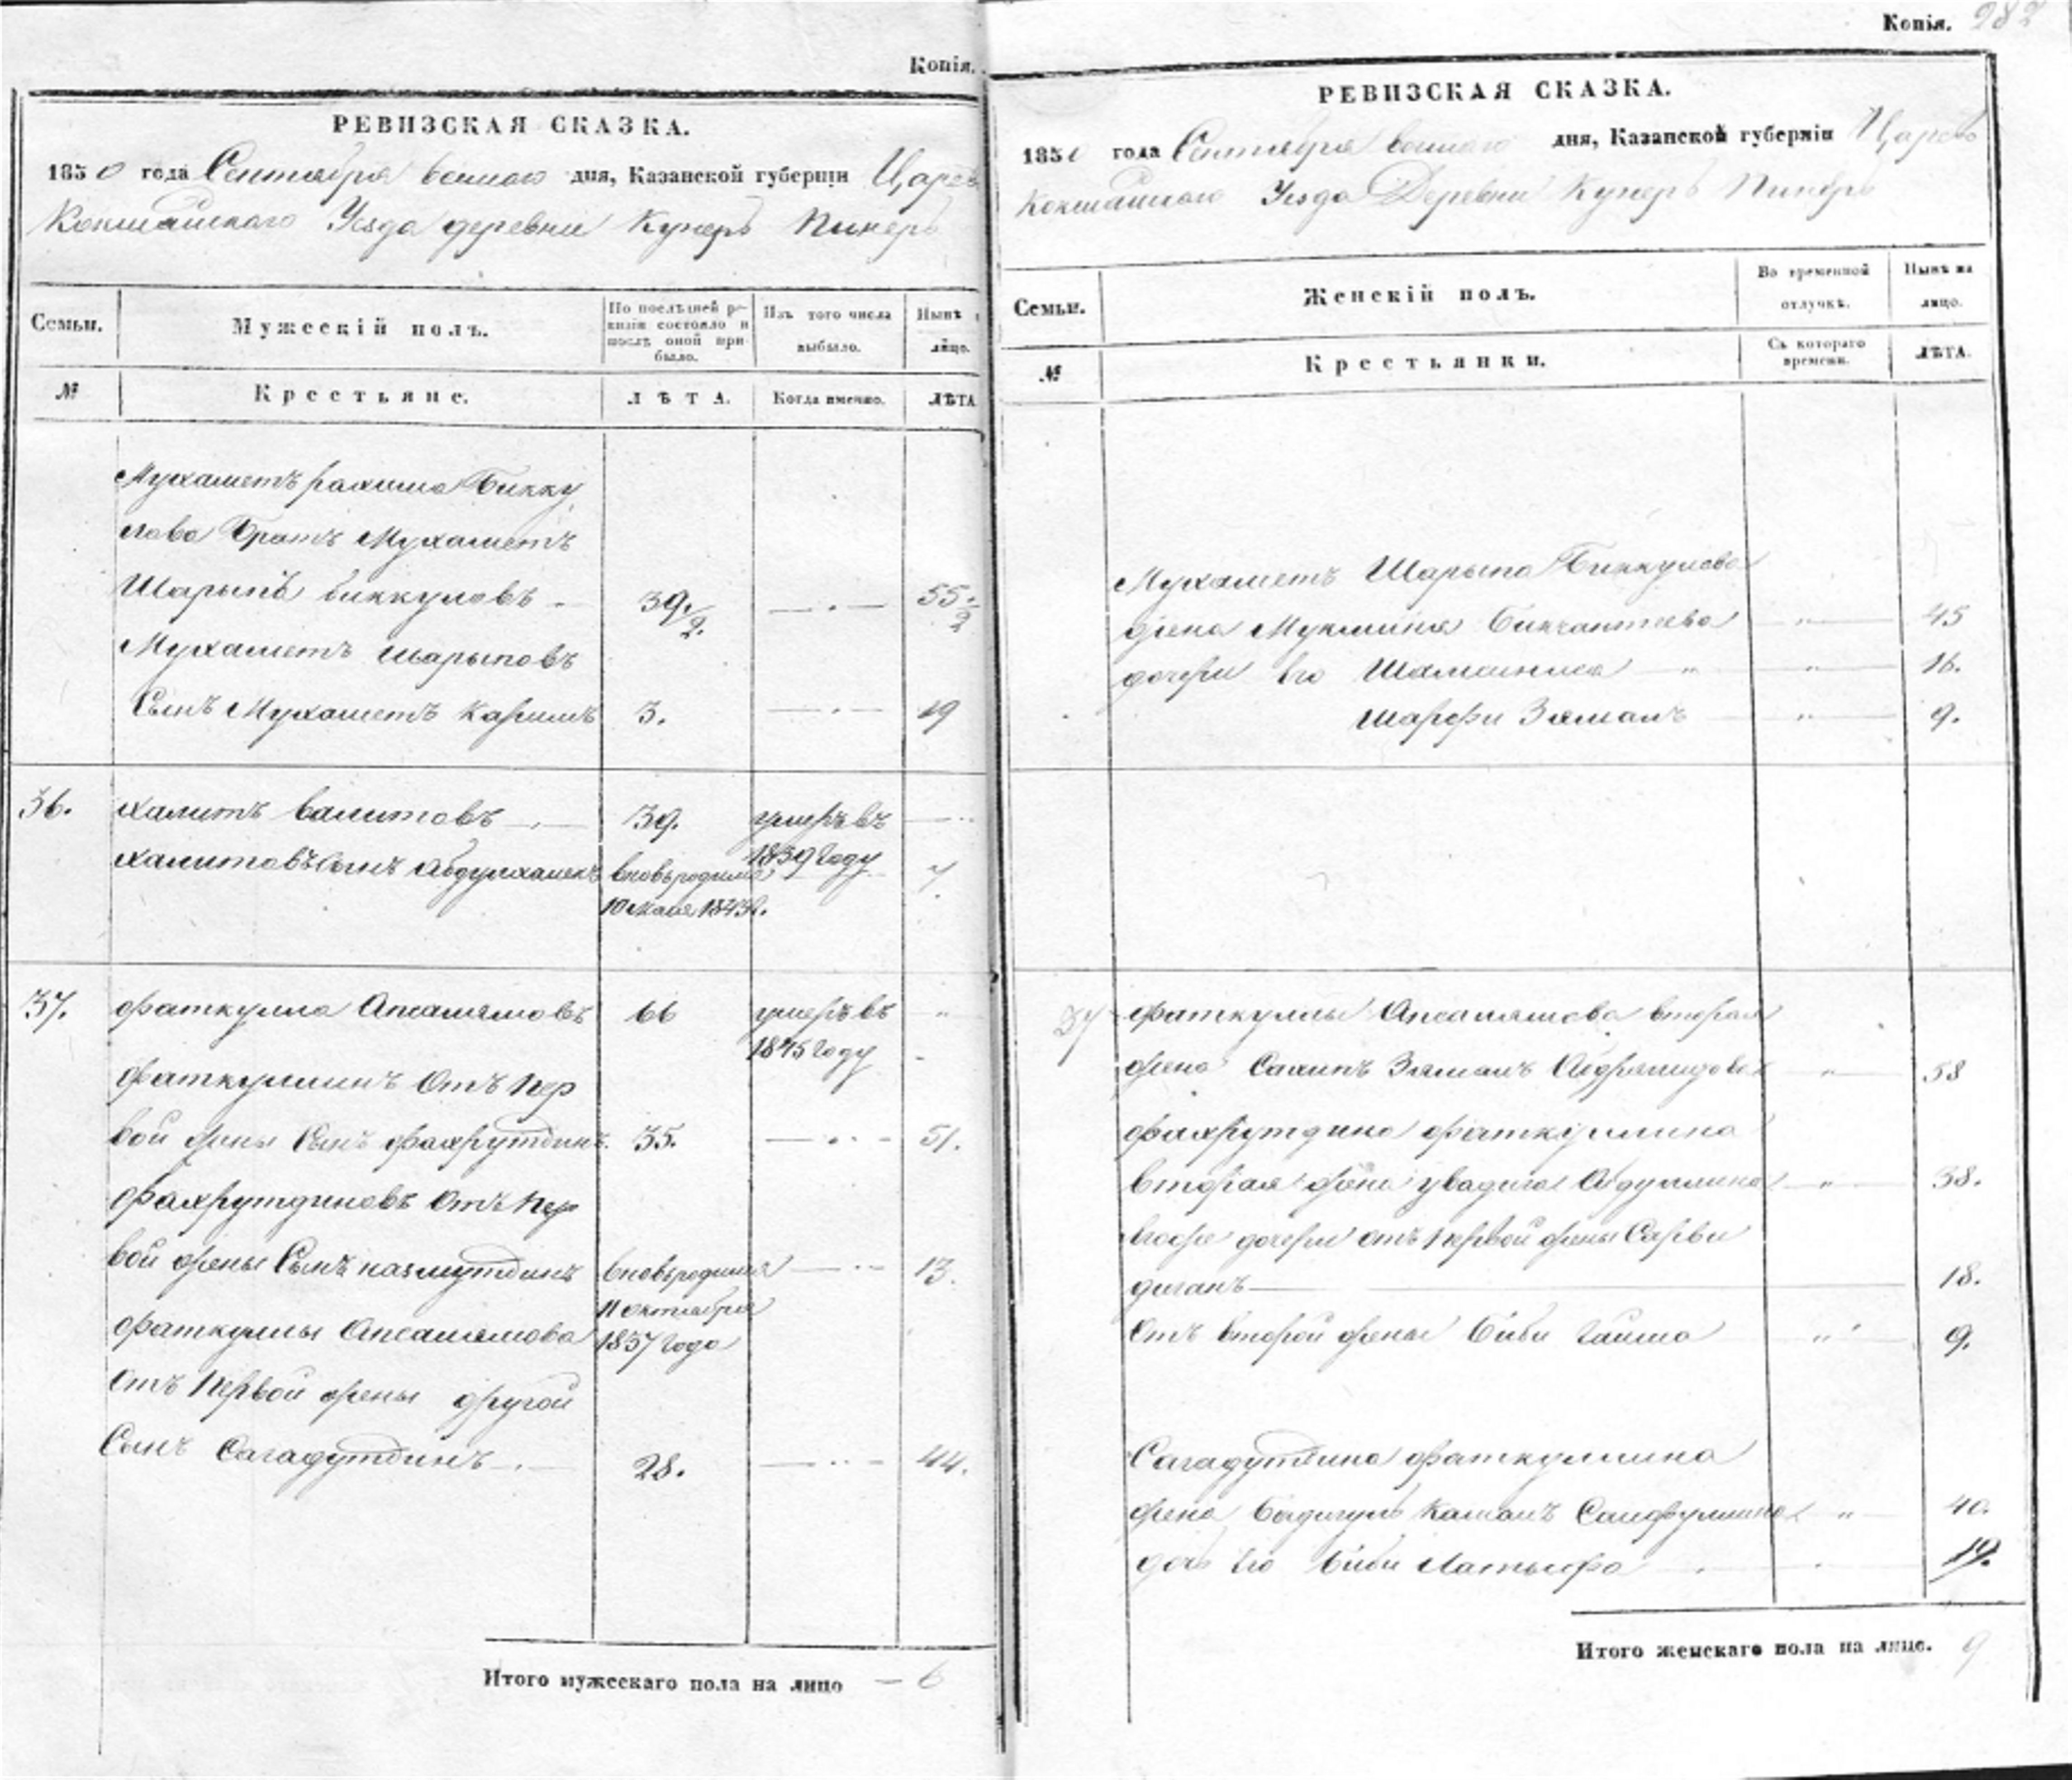 Копія.
РЕВИЗСКАЯ СКАЗКА.
1850 года Сентября дня, Казанской губерніи Царево
Кокшайскаго Уезда деревни Куперъ Пинеръ
Семьи.
Мужескій полъ.
По послѣдней ре-
визіи состояло и
послѣ оной при-
было.
Изъ того числа
выбыло.
Нынѣ
лицо.
№
Крестьяне.
ЛѢТА.
Когда именно.
ЛѢТА
Мухаметъ рахима Бикку
лова Братъ Мухаметъ
Шарыпъ биккуловъ 39./2. 55./2
Мухаметъ шарыповъ
Сынъ Мухаметъ Каримъ 3. 19
36. Халитъ валитовъ 39. умеръ въ
1839 Году
Халитовъ Сынъ вновьродился 7.
10 мая 1843.
37. Фаткулла Апсалямовъ 66 умеръ въ "
1845 Году
Фаткуллинъ Отъ Пер
вой жены Сынъ Фахрутдинъ 35. 51.
Фахрутдиновъ Отъ Пер
вой жены Сынъ назмутдинъ вновьродился 13.
11 октября
1837 Года
Фаткуллы Апсалямова
Отъ Первой жены другой
Сынъ Сагадутдинъ 28. 44.
Итого мужескаго пола на лицо 6
Копія. 282
РЕВИЗСКАЯ СКАЗКА.
1850 года Сентября дня, Казанской губерніи Царево
Кокшайскаго Уезда Деревни Куперъ Пинеръ
Семьи.
Женскій полъ.
Во временной
отлучкѣ.
Нынѣ на
лицо.
№
Крестьянки.
Съ котораго
времени.
ЛѢТА.
Мухаметъ Шарыпа Биккулова
жена Бикчантаева " 45
дочери его " " 16.
шарфи Зяманъ " 9.
37 Фаткуллы Апсалямова вторая
жена Зяманъ " 58
Фахрутдина Фаткуллина
вторая жена Абдуллина " 38.
дочери отъ первой жены Сарви
18.
Отъ второй жены биби " 9.
Сагадутдина Фаткуллина
жена Камалъ " 40.
дочь его биби 19.
Итого женскаго пола на лицо. 9